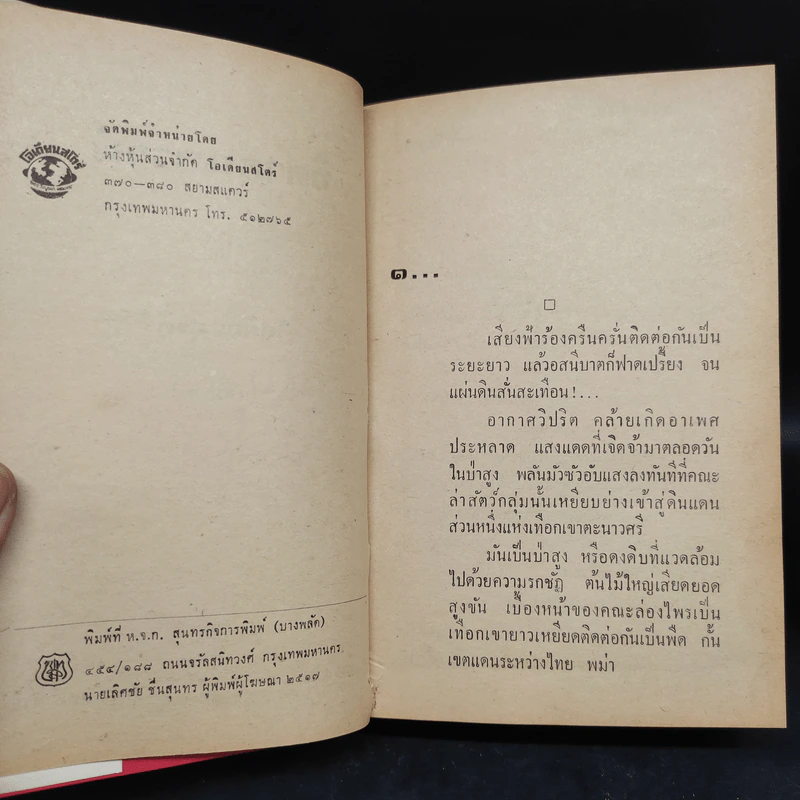 โอเดียนสโตร์
จัดพิมพ์จำหน่ายโดย
ห้างหุ้นส่วนจำกัด โอเดียนสโตร์
๓๗๐—๓๘๐ สยามสแควร์
กรุงเทพมหานคร โทร. ๕๑๒๗๖๕
พิมพ์ที่ ห.จ.ก. สุนทรกิจการพิมพ์ (บางพลัด)
๔๕๔/๑๘๘ ถนนจรัลสนิทวงศ์ กรุงเทพมหานคร.
นายเลิศชัย ชื่นสุนทร ผู้พิมพ์ผู้โฆษณา ๒๕๑๗
๑...
เสียงฟ้าร้องครืนครั่นติดต่อกันเป็น
ระยะยาว แล้วอสนีบาตก็ฟาดเปรี้ยง จน
แผ่นดินสั่นสะเทือน!...
อากาศวิปริต คล้ายเกิดอาเพศ
ประหลาด แสงแดดที่เจิดจ้ามาตลอดวัน
ในป่าสูง พลันมัวซัวอับแสงลงทันทีที่คณะ
ล่าสัตว์กลุ่มนั้นเหยียบย่างเข้าสู่ดินแดน
ส่วนหนึ่งแห่งเทือกเขาตะนาวศรี
มันเป็นป่าสูง หรือดงดิบที่แวดล้อม
ไปด้วยความรกชัฏ ต้นไม้ใหญ่เสียดยอด
สูงขัน เบื้องหน้าของคณะล่องไพรเป็น
เทือกเขายาวเหยียดติดต่อกันเป็นพืด กั้น
เขตแดนระหว่างไทย พม่า